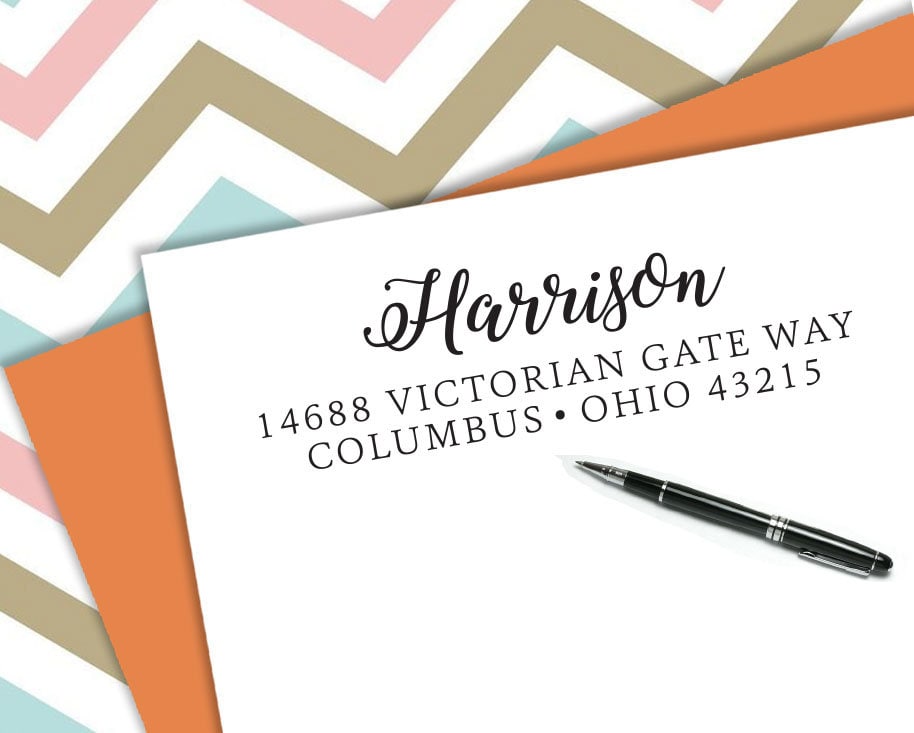 Harrison
14688 VICTORIAN GATE WAY
COLUMBUS • OHIO 43215